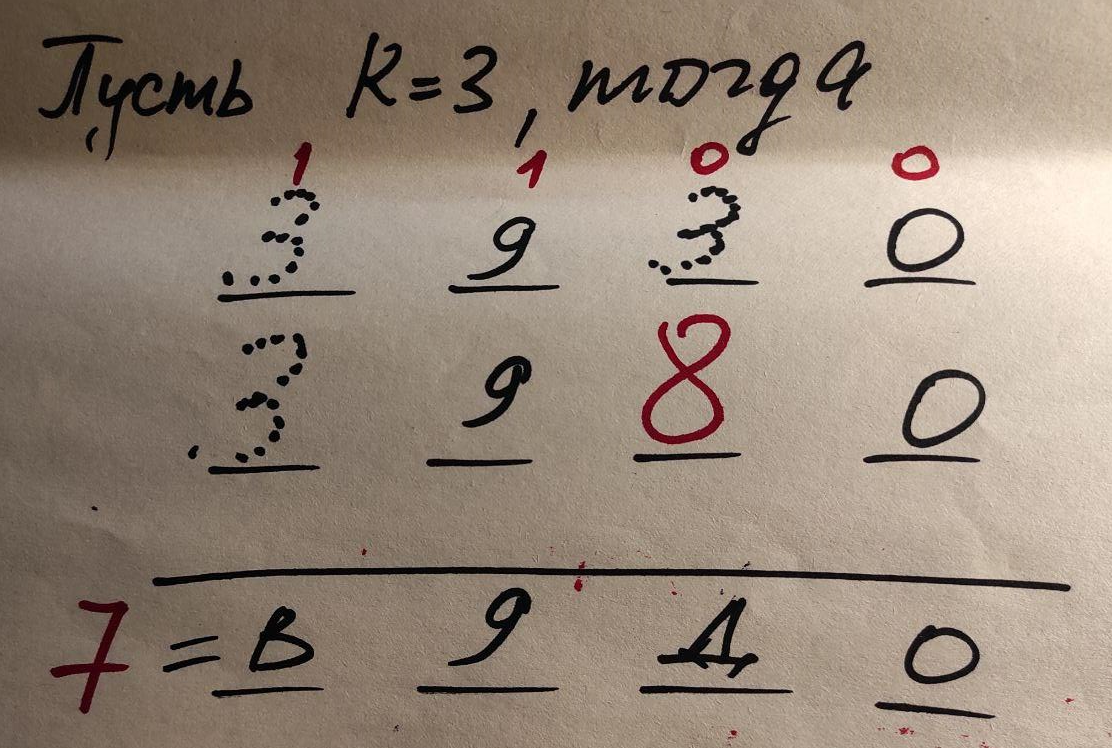 Пусть К=3, тогда
1 1 0 0
3 9 3 0
3 9 8 0
7 = В 9 Д 0